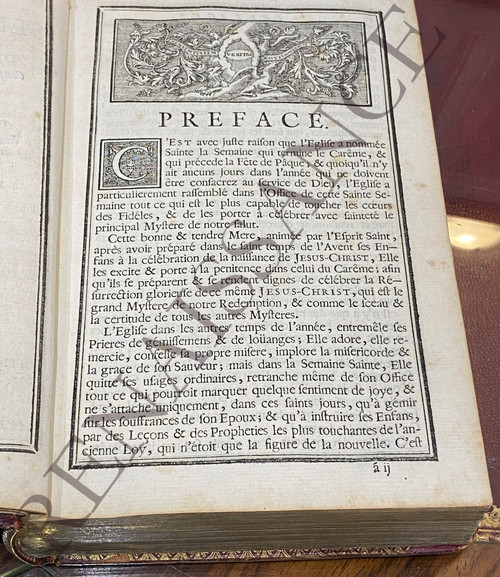 VERITAS
PREFACE.
C'EST avec juste raison que l'Eglise a nommée
Sainte la Semaine qui termine le Carême, &
qui précede la Fête de Pâque; & quoiqu'il n'y
ait aucuns jours dans l'année que ne doivent
être consacrez au service de Dieu, l'Eglise a
particulierement rassemblé dans l'Office de cette Sainte Se-
maine tout ce qui est le plus capable de toucher les cœurs
des Fidéles, & de les porter à célébrer avec sainteté le
principal Mystere de notre salut.
Cette bonne & tendre Mere, animée par l'Esprit Saint,
après avoir préparé dans le saint temps de l'Avent ses En-
fans à la célébration de la naissance de JESUS-CHRIST, Elle
les excite & porte à la penitence dans celui du Carême; afin
qu'ils se préparent & se rendent dignes de célébrer la Ré-
surrection glorieuse de ce même JESUS-CHRIST, qui est le
grand Mystere de notre Redemption, & comme le sceau &
la certitude de tous les autres Mysteres.
L'Eglise dans les autres temps de l'année, entremêle ses
Prieres de gémissemens & de loüanges; Elle adore, elle re-
mercie, confesse sa propre misere, implore la misericorde &
la grace de son Sauveur; mais dans la Semaine Sainte, Elle
quitte ses usages ordinaires, retranche même de son Office
tout ce qui pourroit marquer quelque sentiment de joye, &
ne s'attache uniquement, dans ces saints jours, qu'à gémir
sur les souffrances de son Epoux; & qu'à instruire ses Enfans,
par des Leçons & des Propheties les plus touchantes de l'an-
cienne Loy, qui n'étoit que la figure de la nouvelle. C'est
ã ij
RENAISSANCE